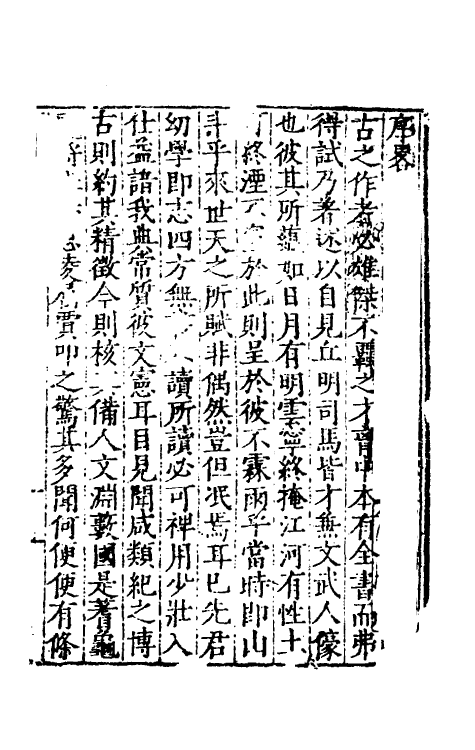 序畧
古之作者必雄傑不羈之才胷中本有全書而弗
得試乃著述以自見丘明司馬皆才無文武人儓
也彼其所蘊如日月有明雲寧終掩江河有性土
可終湮不於此則呈於彼不霖雨乎當時即山
斗乎來世天之所賦非偶然豈但泯焉耳巳先君
幼學即志四方無人讀所讀必可裨用少壯入
仕益諳我典常質彼文憲耳目見聞咸類紀之博
古則約其精徵今則核備人文淵藪國是蓍龜
賈叩之驚其多聞何便便有條